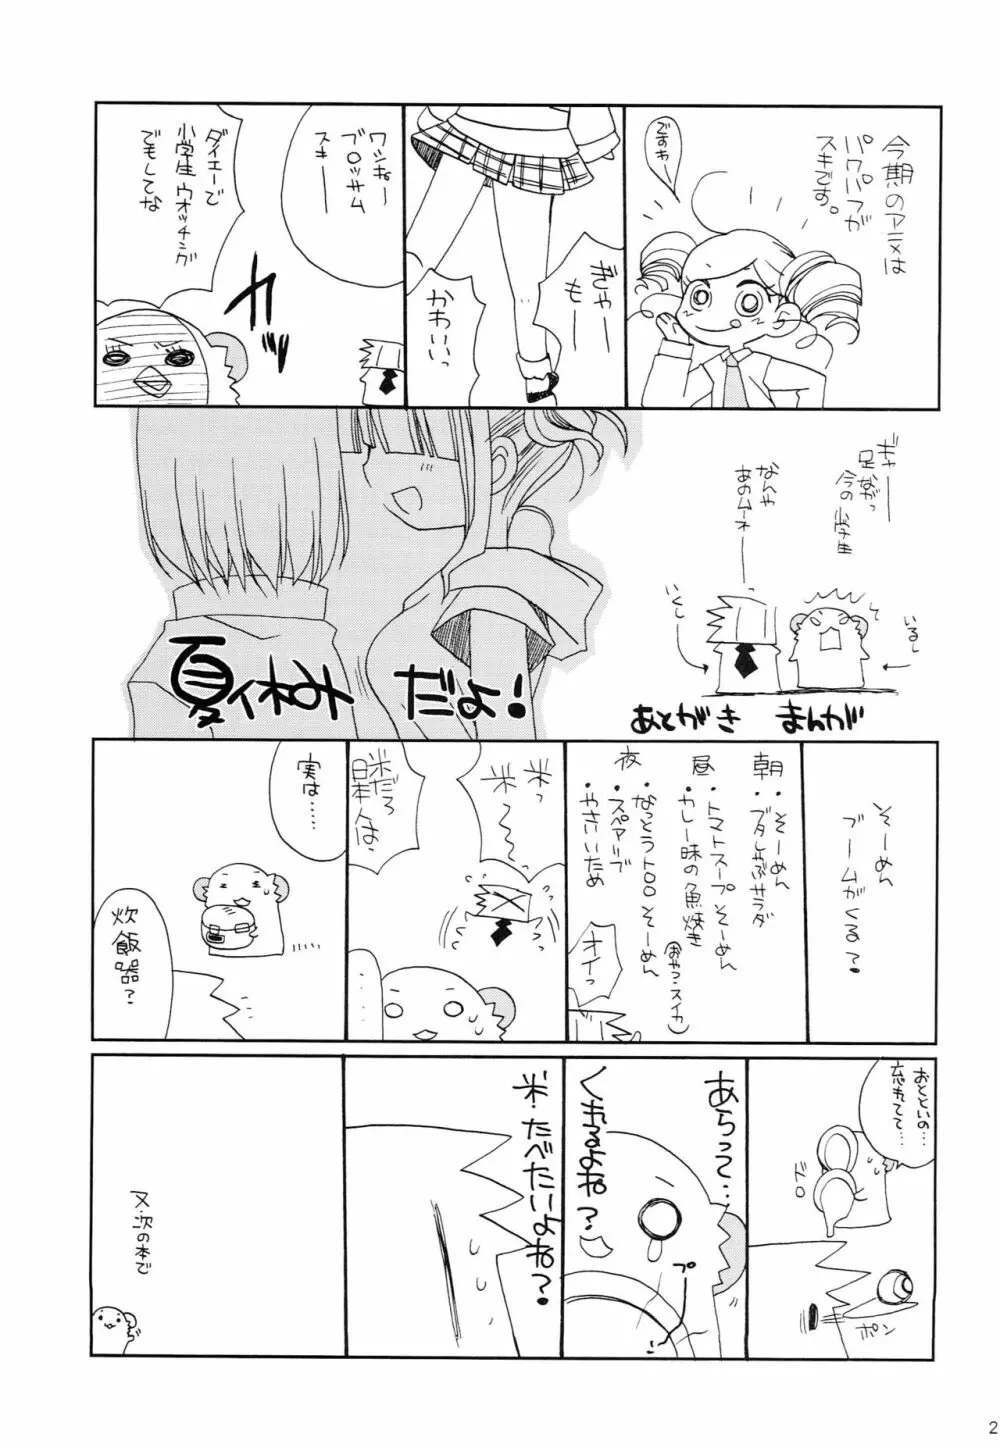 今期のアニメは
パワパフが
スキです。
ですわー
ぎゃー
も
かわいっ
ワシもー
ブロッサム
スキー
ダイエーで
小学生ウオッチング
でもしてな
カッ
ギャー
足ながっ
今の小学生
なんや
あのムーネー
いるし
いくし
あとがき まんが
夏イネま だよ!
そーめん
ブームがくる?
朝・そーめん
・ブタしゃぶサラダ
昼・トマトスープそーめん
・カレー味の魚焼き
(おやつ・スイカ)
夜・なっとうトロロそーめん
・スペアリブ
・やさいいため
オイっ
米っ
米〜
米だろ
日本人は、
・・・・
実は……
炊飯器?
おとといの…
忘れてて…
ドロ
ポン
あらって…
くれるよね?
プ〜ン
米・たべたいよね?
又・次の本で
2